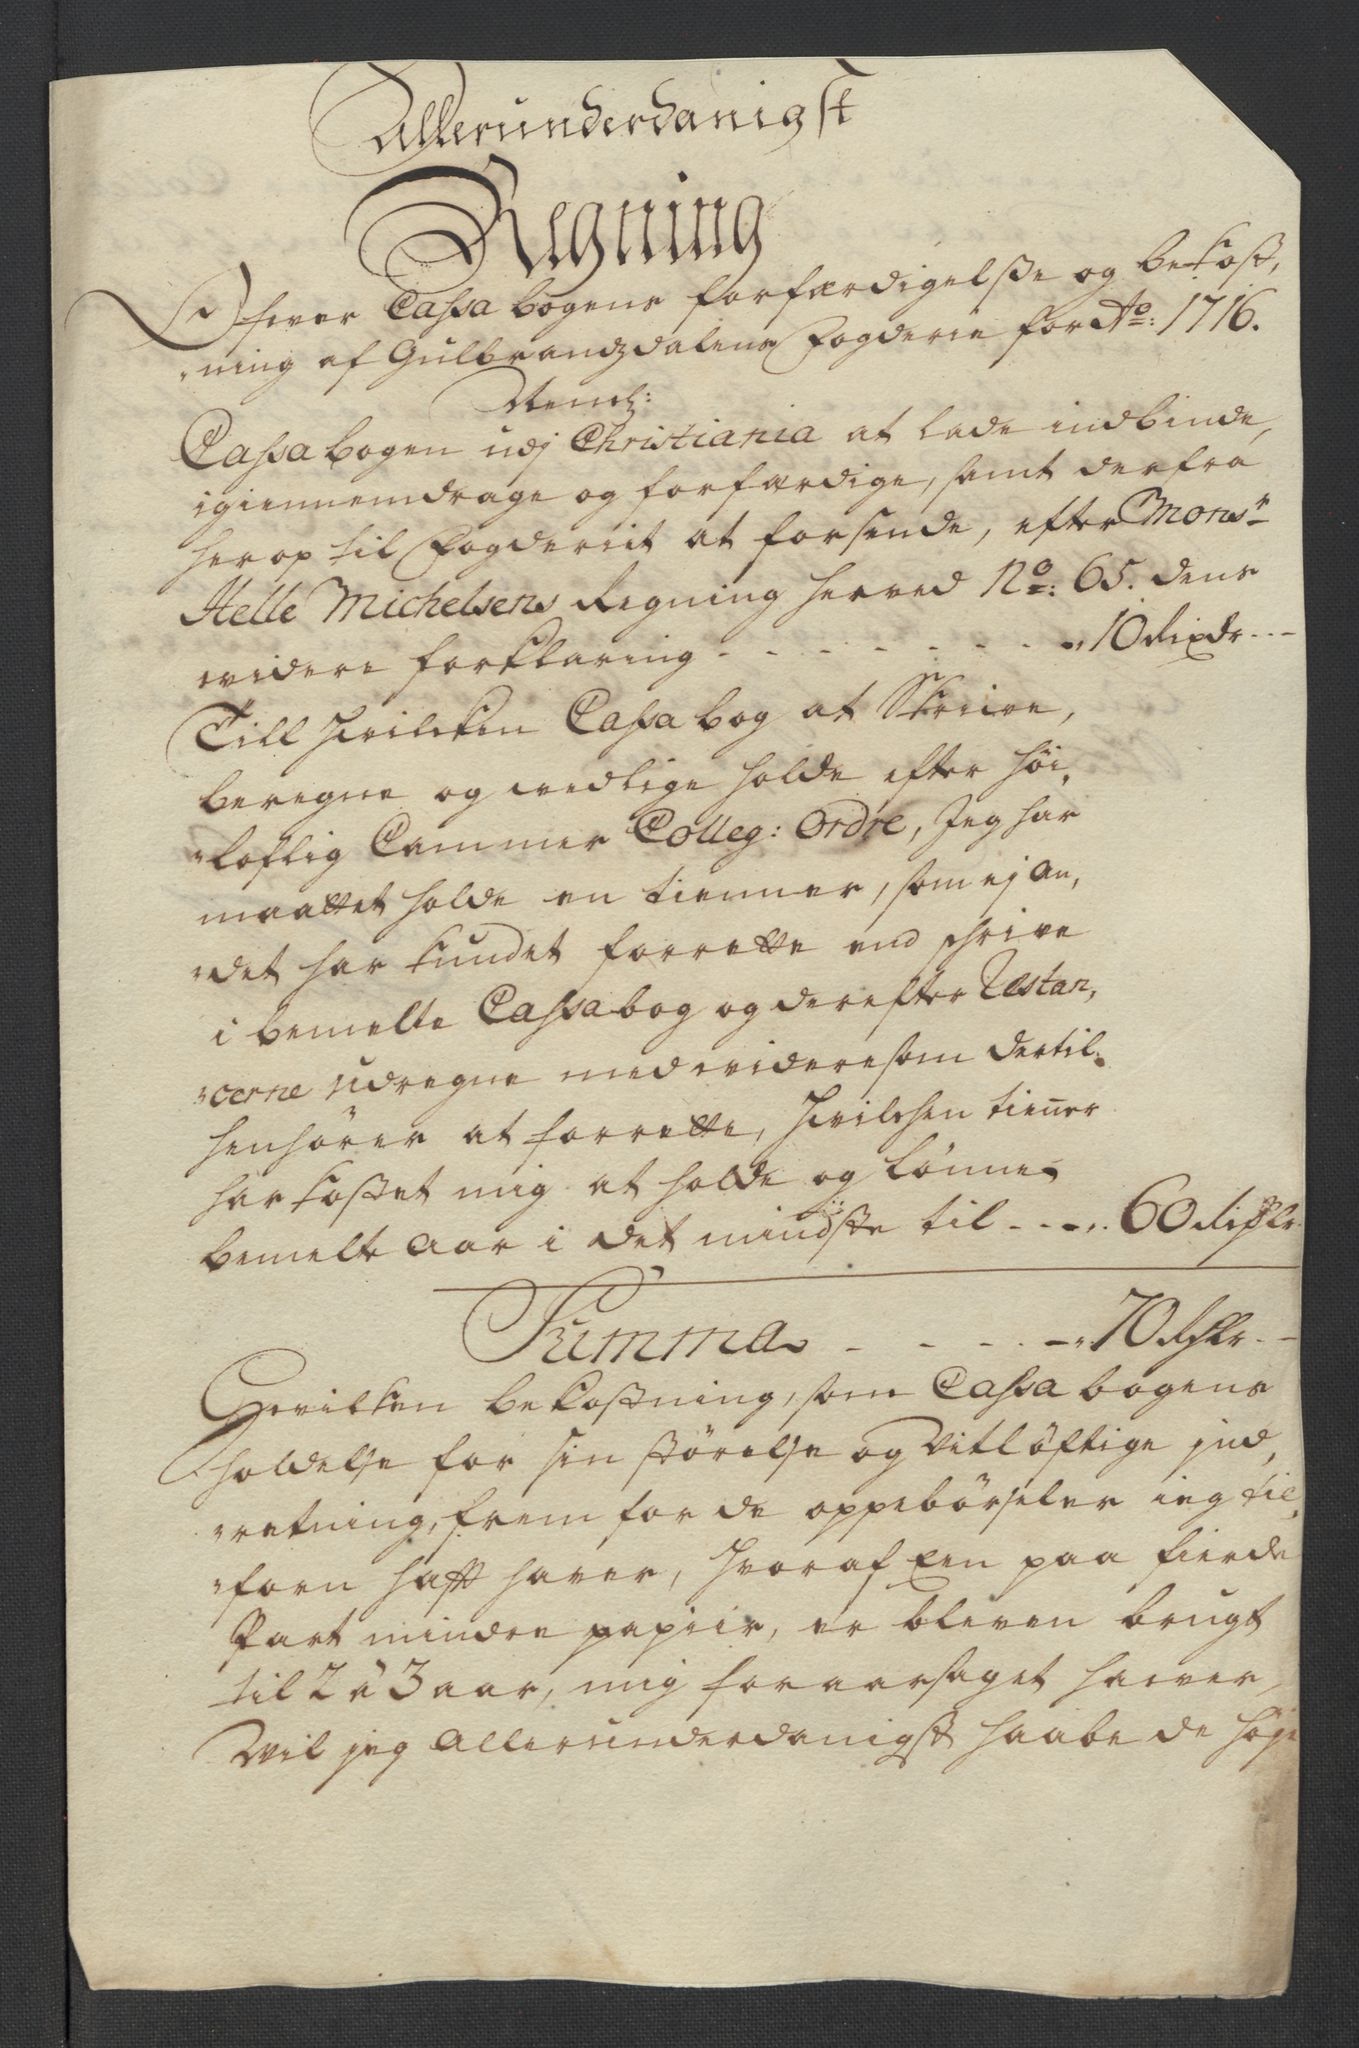 Allerunderdanigst
Regning
Ofver Cassa bogens forfærdigelsse og bekost,
"ning af Gulbrandzdalens Fogderie for Ao: 1716.
Neml:
Cassa bogen udj Christiania at lade indbinde,
igiennemdrage og forfærdige, samt derfra
her op til Fogderiet at forsende, efter Monsr
Helle Michelsens Regning herved No: 65. dens
widere forklaring - - - - - - - - - " 10 Rixdr - -
Till hvilcken Cassa bog at Skriive,
beregne og wedlige holde efter höi,
"loflig Cammer Colleg: Ordre, Jeg har
maattet holde en tienner, som ej an,
"det har kundet forrette end schrive
i bemelte Cassa bog og derefter Restan,
"cerne udregne med widere som dertil,
henhörer at forrette, hvilchen tiener
har kostet mig at holde og lönne
bemelte Aar i det mindste til - - - - 60 Rixdr
Summa - - - - - " 70 Rdr - -
Hvilken bekostning, som Cassa bogens
holdelse for sin störelse og Vitlöftige ind,
"retning, frem for de oppebörseler ieg til,
"forn hafft haver, hvoraf Een paa fierde
Part mindre papiir, er bleven brugt
til 2 à 3 aar, mig foraarsaget hafver,
Vil jeg Allerunderdanigst haabe de höje